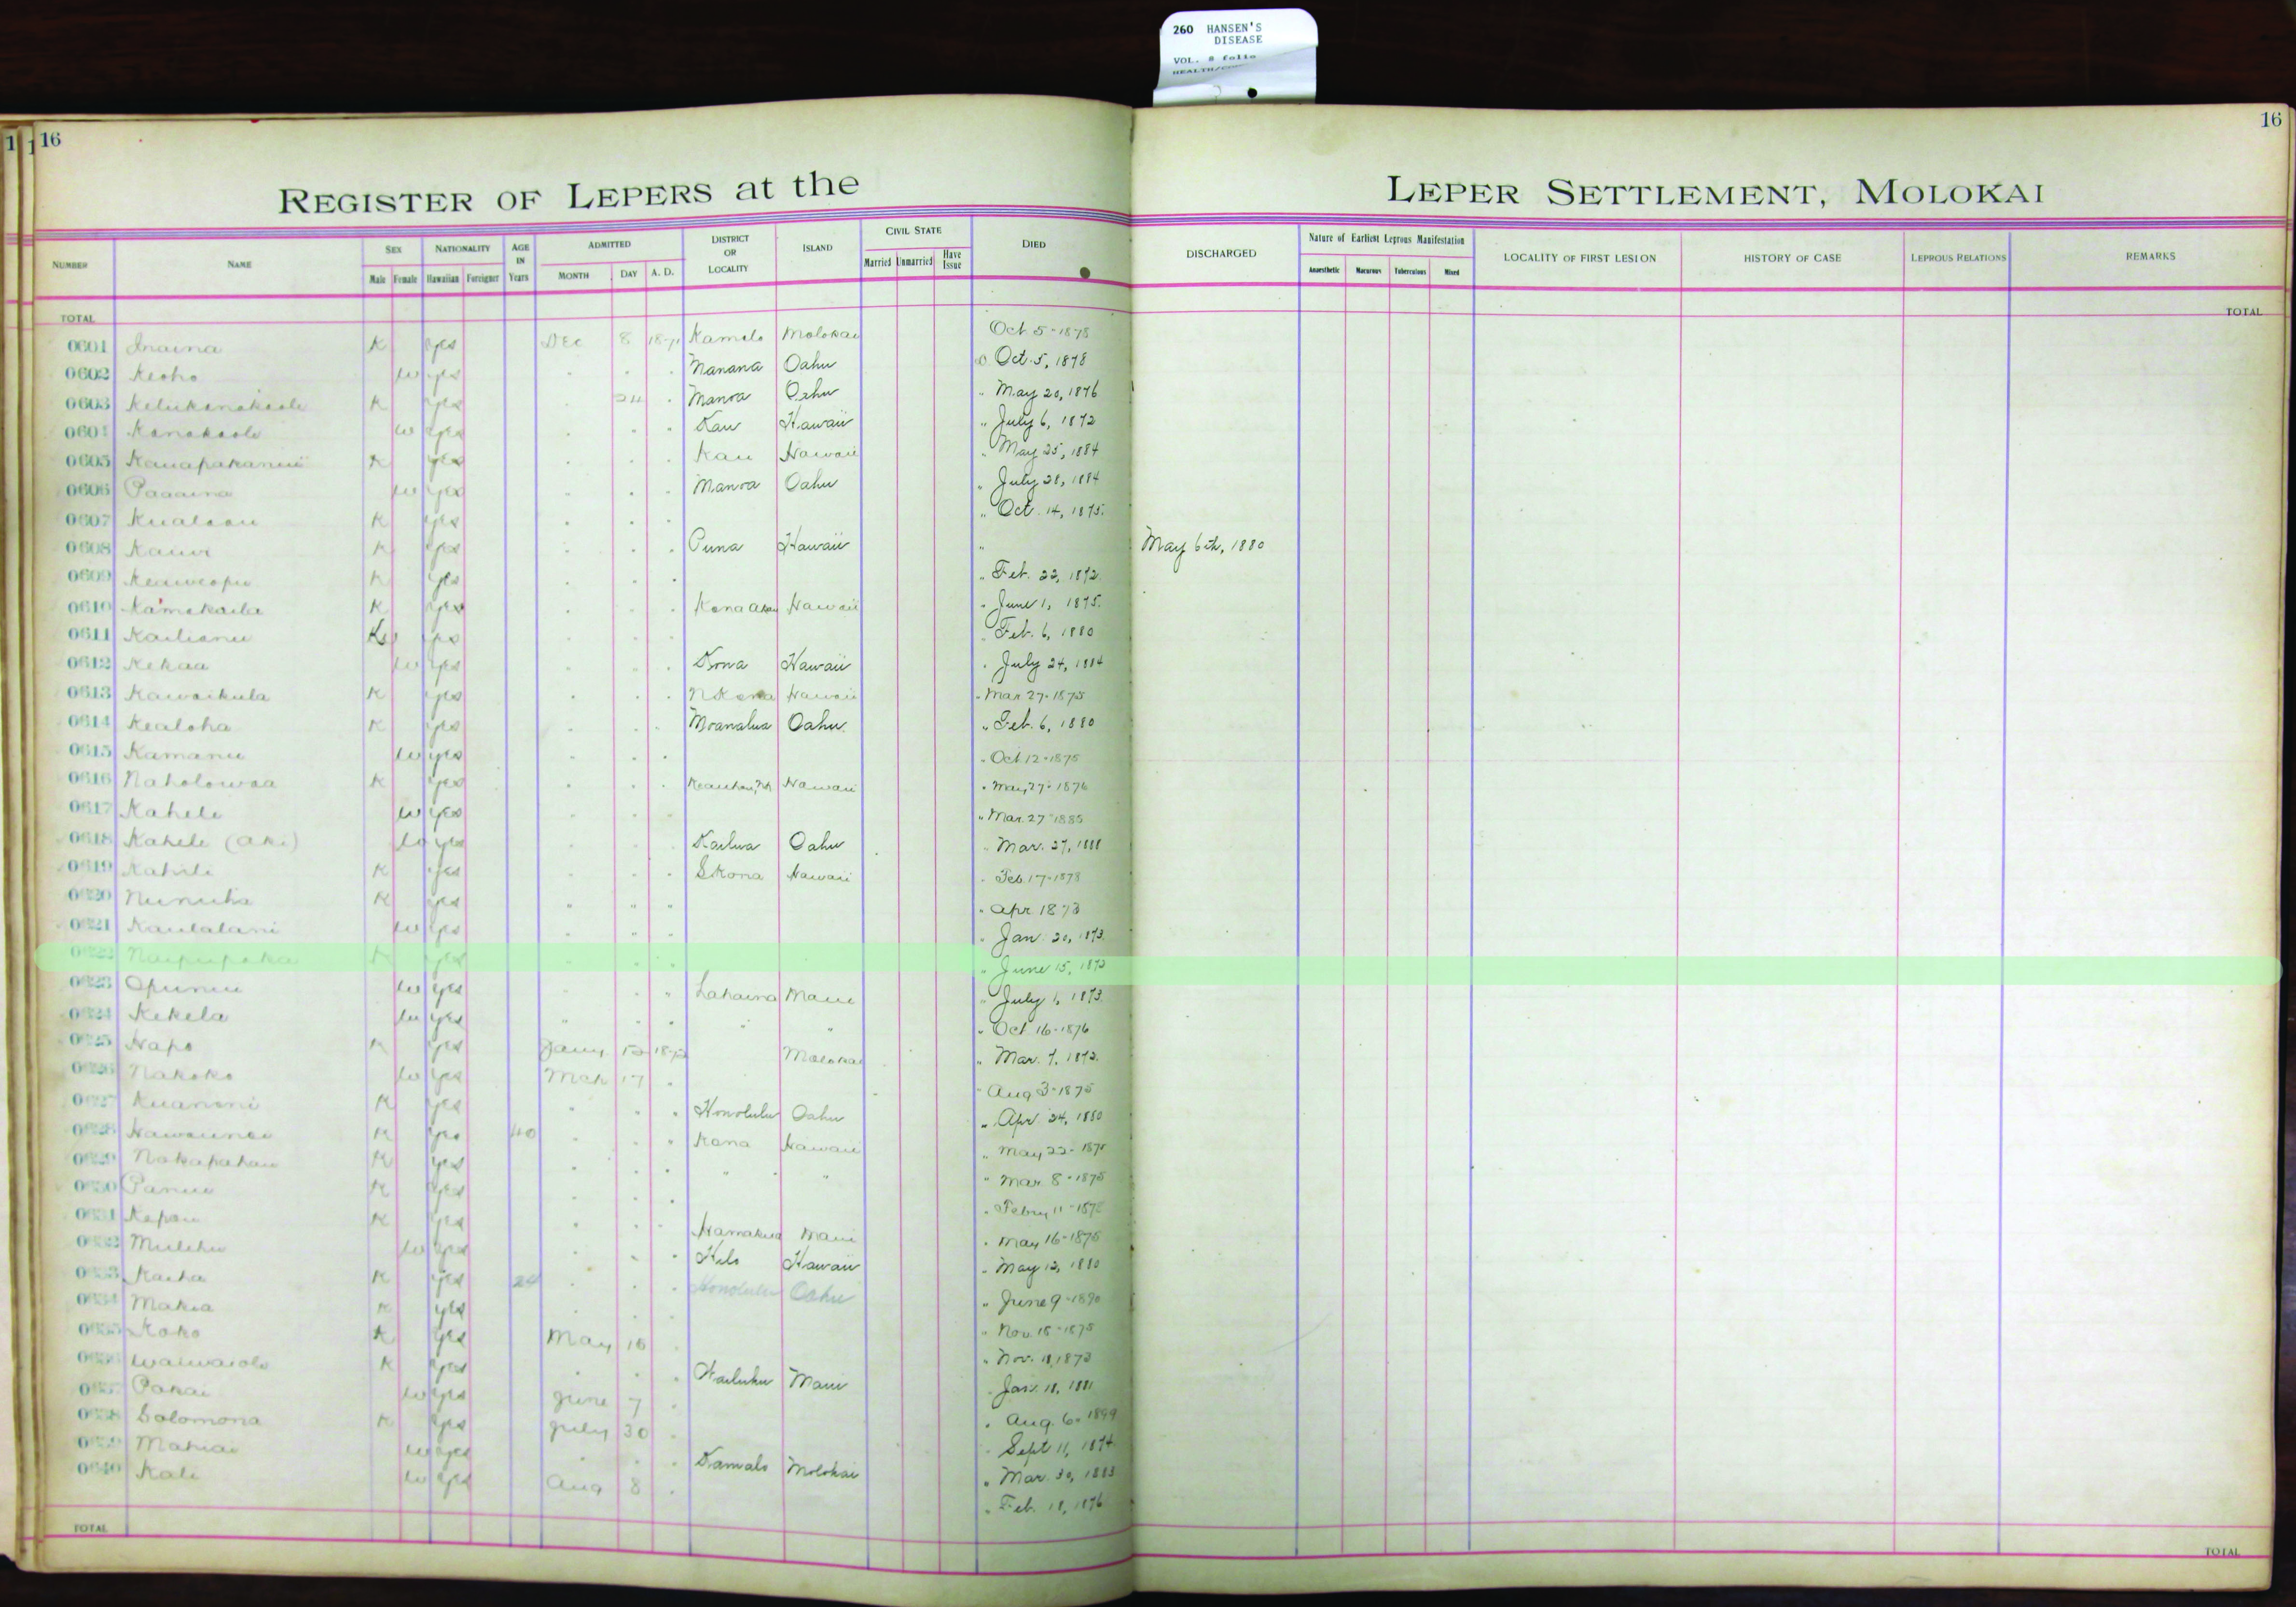 260 HANSEN'S
DISEASE
VOL. 8 folio
16
16
REGISTER OF LEPERS at the LEPER SETTLEMENT, MOLOKAI
NUMBER NAME SEX Male Female NATIONALITY Hawaiian Foreigner AGE IN Years ADMITTED MONTH DAY A. D. DISTRICT OR LOCALITY ISLAND CIVIL STATE Married Unmarried Have Issue DIED DISCHARGED Nature of Earliest Leprous Manifestation Anaesthetic Macurous Tuberculous Mixed LOCALITY OF FIRST LESION HISTORY OF CASE LEPROUS RELATIONS REMARKS
TOTAL TOTAL
0601 Inaina K yes Dec 8 1871 Kamalo Molokai Oct 5-1878
0602 Keoho w yes Manana Oahu Oct. 5, 1878
0603 K yes 24 Manoa Oahu " May 20, 1876
0604 Kanakaole w yes Kau Hawaii " July 6, 1872
0605 K yes Kau Hawaii " May 25, 1884
0606 Paaaina w yes Manoa Oahu " July 28, 1884
0607 K yes " Oct. 14, 1875.
0608 Kauwi K yes Puna Hawaii " May 6th, 1880
0609 Keaweopu K yes " Feb. 22, 1872.
0610 Kamakaila K yes Kona Akau Hawaii " June 1, 1875.
0611 Kailianu yes Feb. 6, 1880
0612 Kekaa w yes Kona Hawaii " July 24, 1884
0613 Kawaikula K yes N Kona Hawaii " Mar 27-1875
0614 Kealoha K yes Moanalua Oahu " Feb. 6, 1880
0615 Kamanu w yes " Oct 12-1875
0616 Naholowaa K yes Keauhou, NK Hawaii " May 27-1876
0617 Kahele w yes " Mar. 27-1885
0618 Kahele (Aki) w yes Kailua Oahu " Mar. 27, 1888
0619 Kahili K yes S Kona Hawaii " Feb. 17-1878
0620 Nunuha K yes " " " " Apr 1873
0621 Kaulalani w yes " Jan. 20, 1873.
0622 Naipupaka K yes " June 15, 1872
0623 Opunui w yes " Lahaina Maui " July 1, 1873.
0624 Kekela w yes " " " " Oct 16-1876
0625 Hapo K yes Jany 1872 Molokai " Mar. 7, 1872.
0626 Nakoko w yes Mch 17 " Aug 3-1875
0627 Kuanoni K yes Honolulu Oahu " Apr. 24, 1880
0628 K yes 40 Kona Hawaii " May 22-1875
0629 Nakapahau K yes " " " Mar. 8-1875
0630 Panui K yes " Febry 11-1872
0631 Kepau K yes Hamakua Maui " May 16-1875
0632 Mulehu w yes Hilo Hawaii " May 12, 1880
0633 Kaiha K yes 24 Honolulu Oahu " June 9-1890
0634 Makia K yes " Nov. 15-1875
0635 Koko K yes May 15 " Nov. 11, 1873
0636 Waiwaiole K yes Wailuku Maui " Jan. 18, 1881
0637 Pakai w yes June 7 " Aug. 6. 1899
0638 Solomona K yes July 30 " Sept 11, 1874
0639 Mahiai w yes Kamalo Molokai " Mar. 30, 1883
0640 Kali w yes Aug 8 " Feb. 18, 1876
TOTAL TOTAL